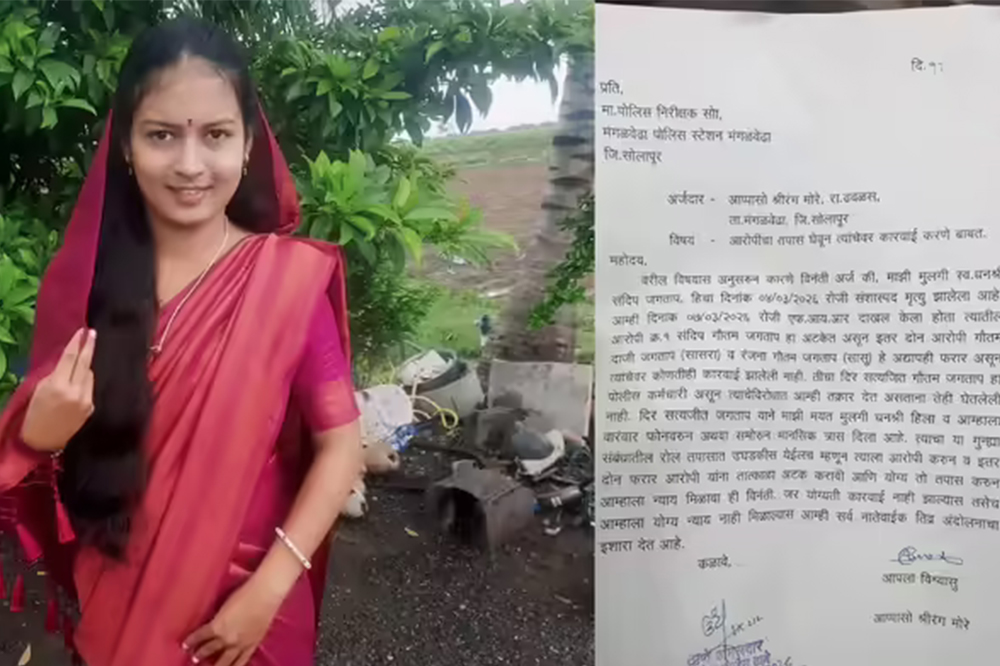 दि.१२
प्रति,
मा.पोलिस निरीक्षक सोा,
मंगळवेढा पोलिस स्टेशन मंगळवेढा
जि.सोलापूर
अर्जदार - आप्पासो श्रीरंग मोरे, रा.ढवळस,
ता.मंगळवेढा, जि.सोलापूर
विषय - आरोपींचा तपास घेवून त्यांचेवर कारवाई करणे बाबत.
महोदय,
वरील विषयास अनुसरुन कारणे विनंती अर्ज की, माझी मुलगी स्व.धनश्री
संदिप जगताप. हिचा दिनांक ०४/०३/२०२६ रोजी संशास्पद मृत्यु झालेला आहे
आम्ही दिनांक ०७/०३/२०२६ रोजी एफ.आय.आर दाखल केला होता त्यातील
आरोपी क्र.१ संदिप गौतम जगताप हा अटकेत असून इतर दोन आरोपी गौतम
दाजी जगताप (सासरा) व रंजना गौतम जगताप (सासु) हे अद्यापही फरार असून
त्यांचेवर कोणतीही कारवाई झालेली नाही. तीचा दिर सत्यजित गौतम जगताप हा
पोलीस कर्मचारी असून त्याचेविरोधात आम्ही तक्रार देत असताना तेही घेतलेली
नाही. दिर सत्यजीत जगताप याने माझी मयत मुलगी धनश्री हिला व आम्हाला
वारंवार फोनवरुन अथवा समोरुन मानसिक त्रास दिला आहे. त्याचा या गुन्ह्या
संबंधातील रोल तपासात उघडकीस येईलच म्हणून त्याला आरोपी करुन व इतर
दोन फरार आरोपी यांना तात्काळ अटक करावी आणि योग्य तो तपास करुन
आम्हाला न्याय मिळावा ही विनंती. जर योग्यती कारवाई नाही झाल्यास तसेच
आम्हाला योग्य न्याय नाही मिळाल्यास आम्ही सर्व नातेवाईक तिव्र आंदोलनाचा
इशारा देत आहे.
कळावे,
आपला विश्वासु
आप्पासो श्रीरंग मोरे